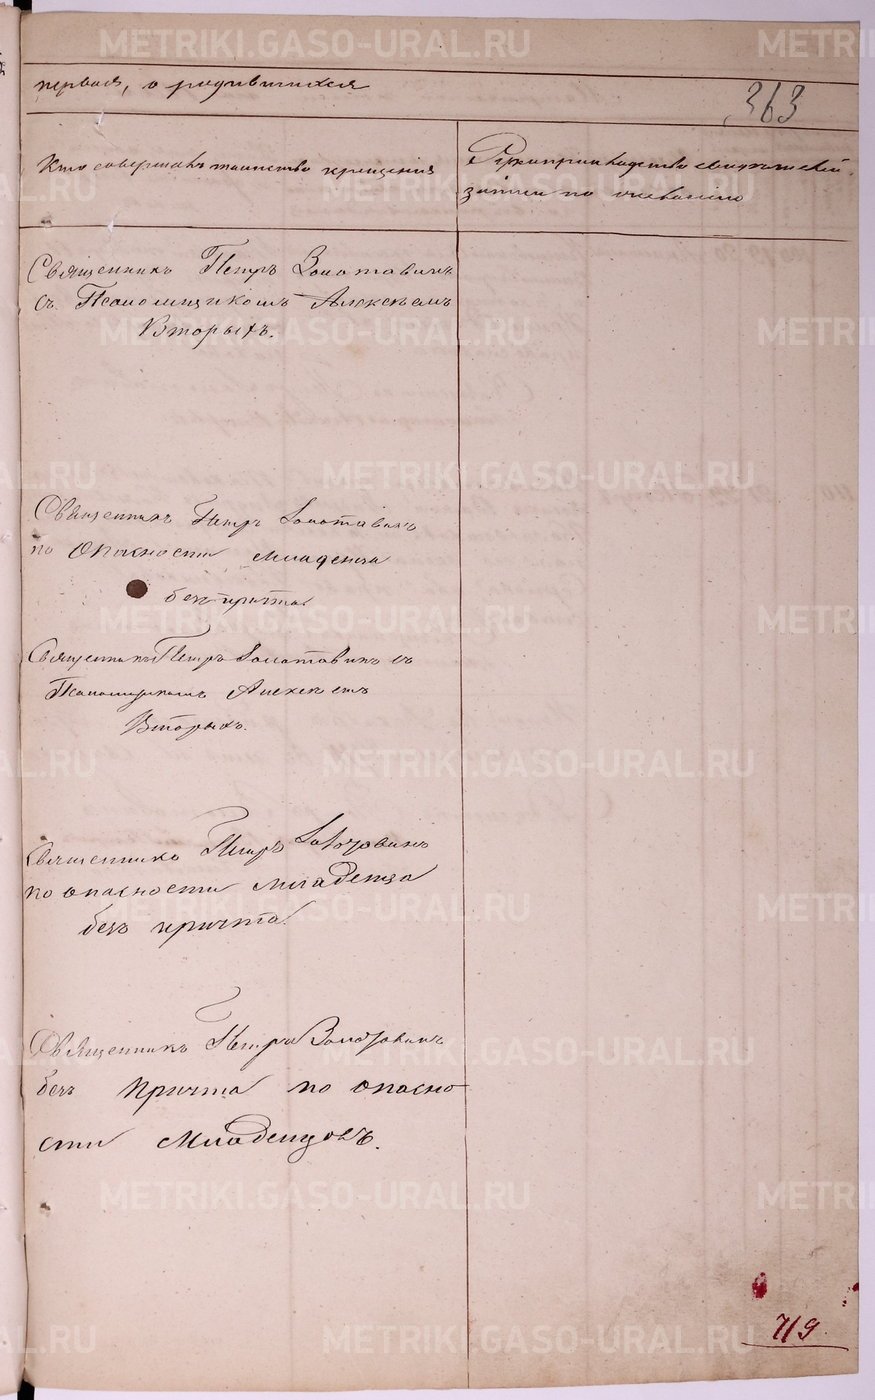 первая, о родившихся
363
Кто совершалъ таинство крещенія
Рукоприкладство свидѣтелей
записи по желанію
Священникъ Петръ Золотавинъ
съ Псаломщикомъ Алексѣемъ
Вторыхъ.
Священникъ Петръ Золотавинъ
по опасности младенца
безъ причта.
Священникъ Петръ Золотавинъ съ
Псаломщикомъ Алексѣемъ
Вторыхъ.
Священникъ Петръ Золотавинъ
по опасности младенца
безъ причта.
Священникъ Петръ Золотавинъ
безъ причта по опасно
сти младенцовъ.
719
METRIKI.GASO-URAL.RU